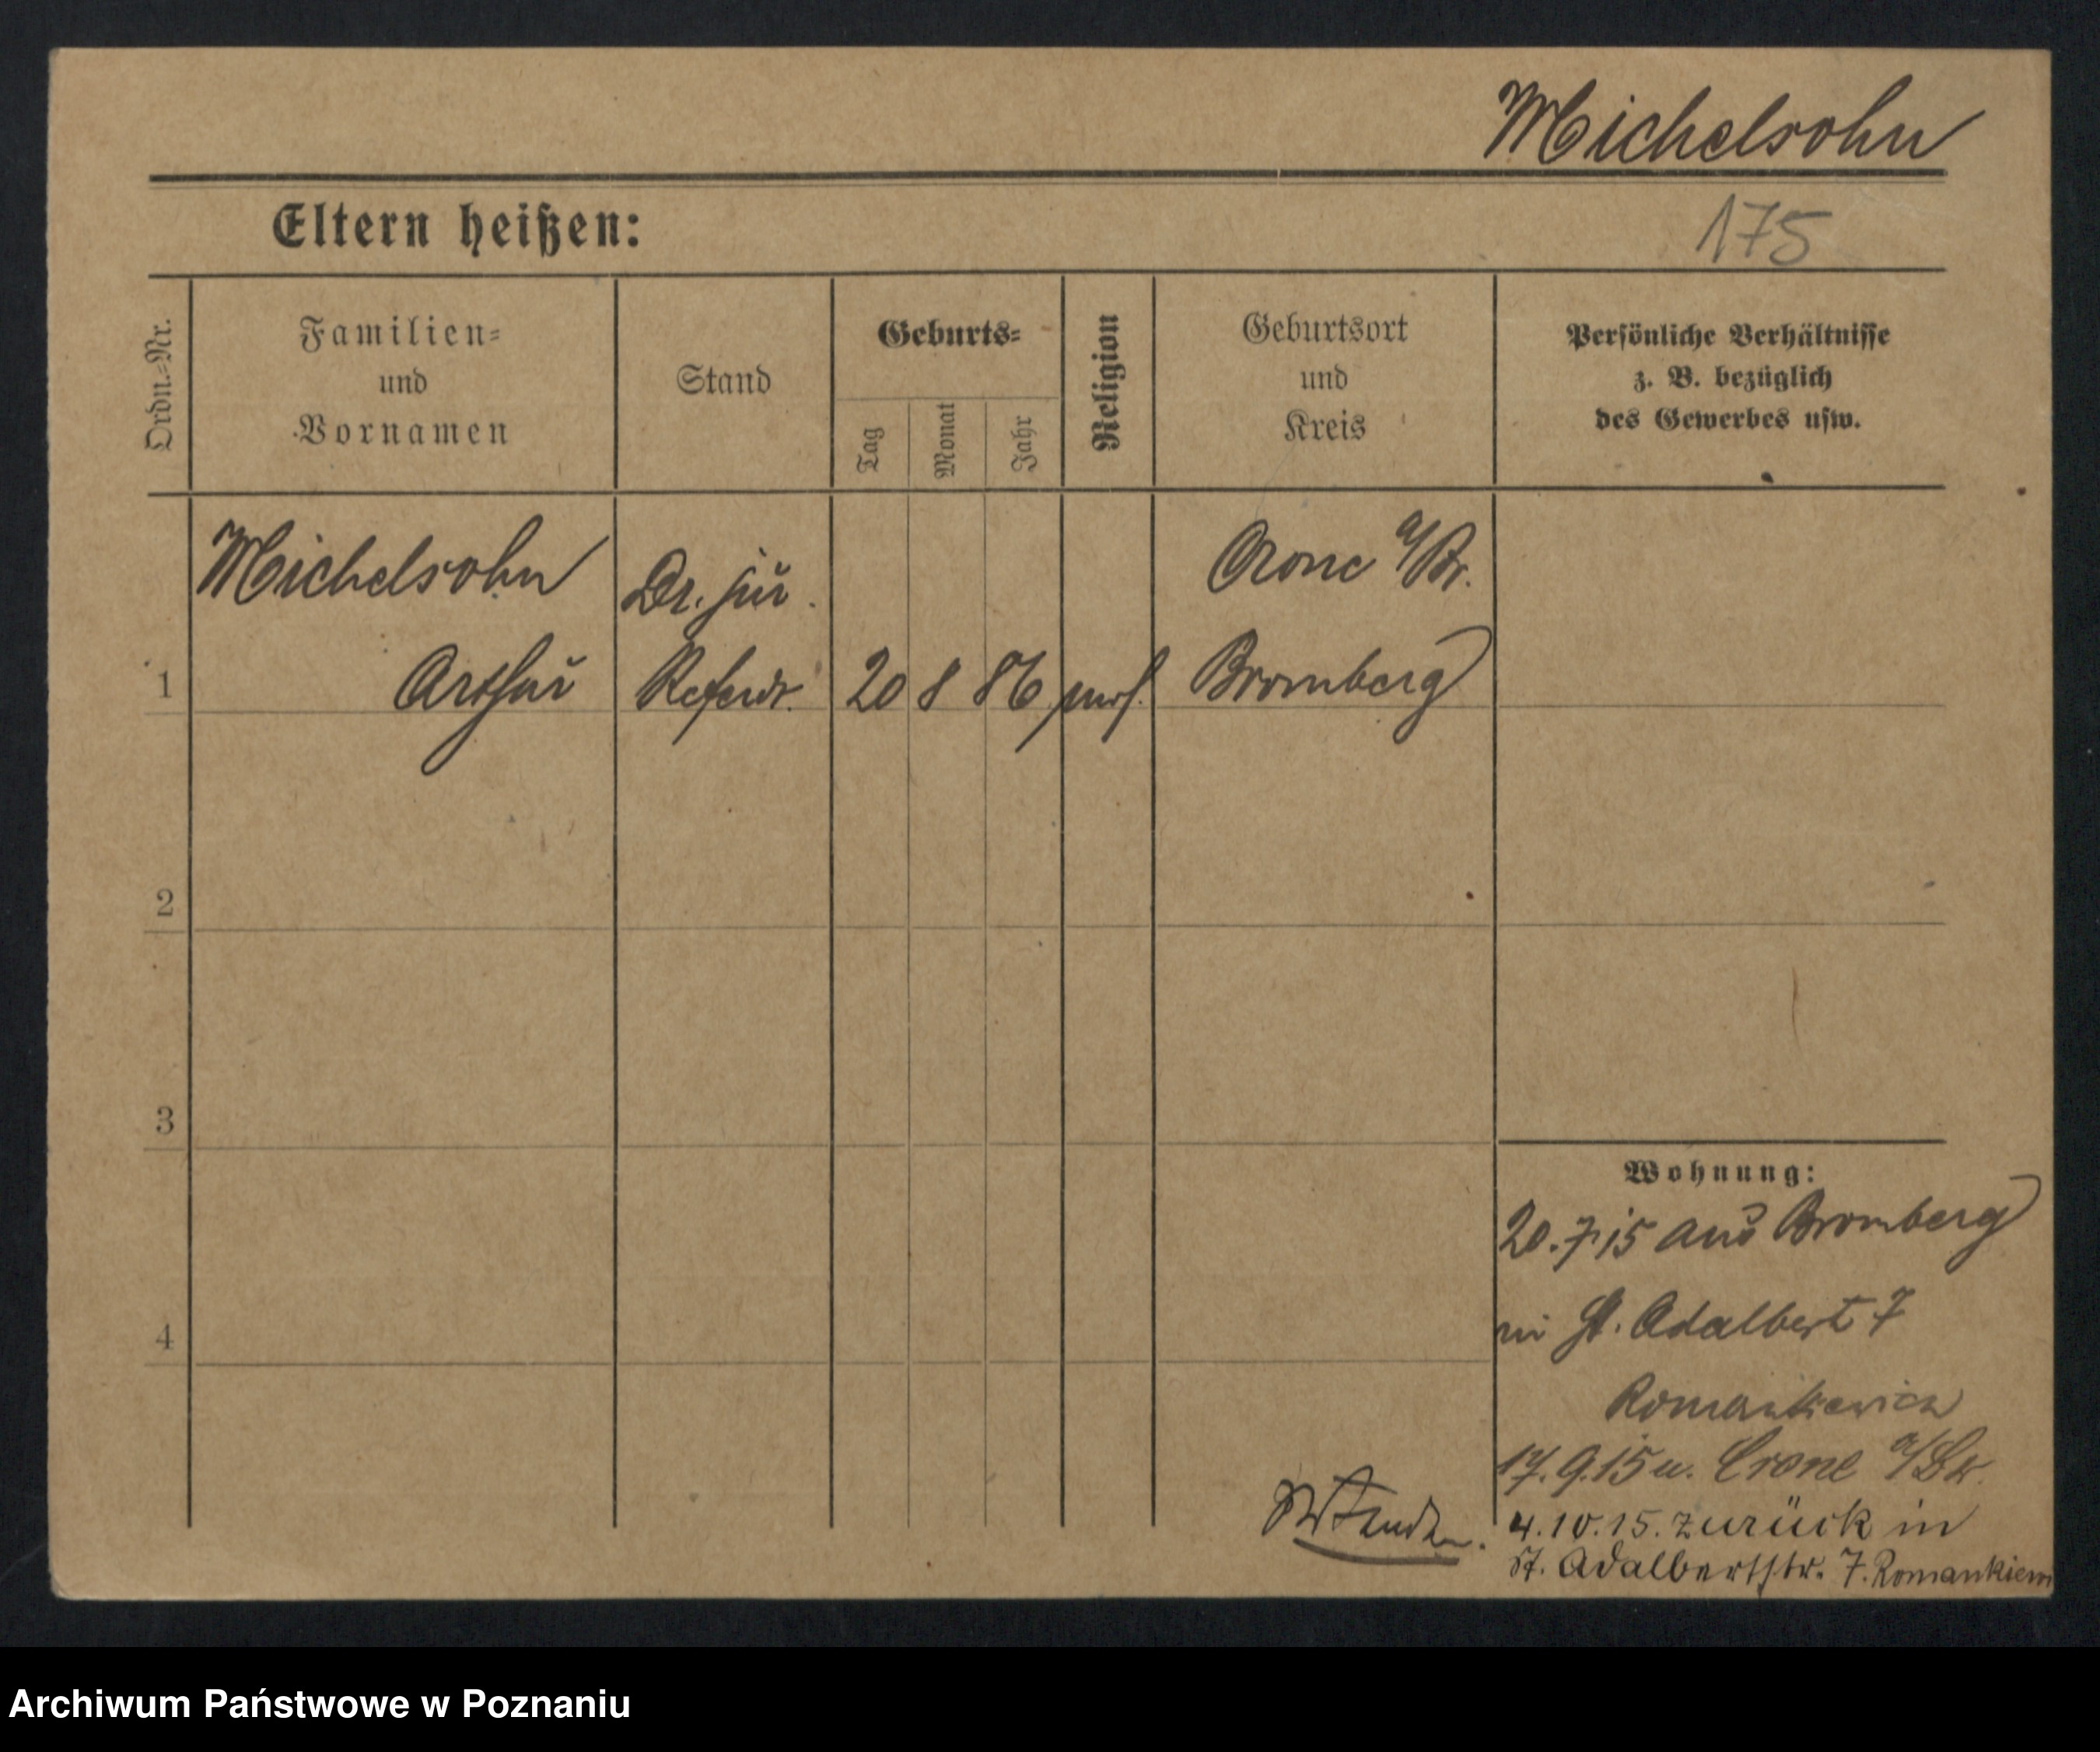 Michelsohn
Eltern heißen:
175
Ordn.-Nr.
Familien-
und
Vornamen
Stand
Geburts-
Tag
Monat
Jahr
Religion
Geburtsort
und
Kreis
Persönliche Verhältnisse
z. B. bezüglich
des Gewerbes usw.
Michelsohn
Arthur
Dr. jur.
Referdr.
20 8 86
Crone a/Br.
Bromberg
1
2
3
4
Wohnung:
20.7.15 aus Bromberg
in St. Adalbert 7
Romankiewicz
17.9.15 n. Crone a/Br.
4.10.15. zurück in
St. Adalbertstr. 7. Romankiewi
Archiwum Państwowe w Poznaniu